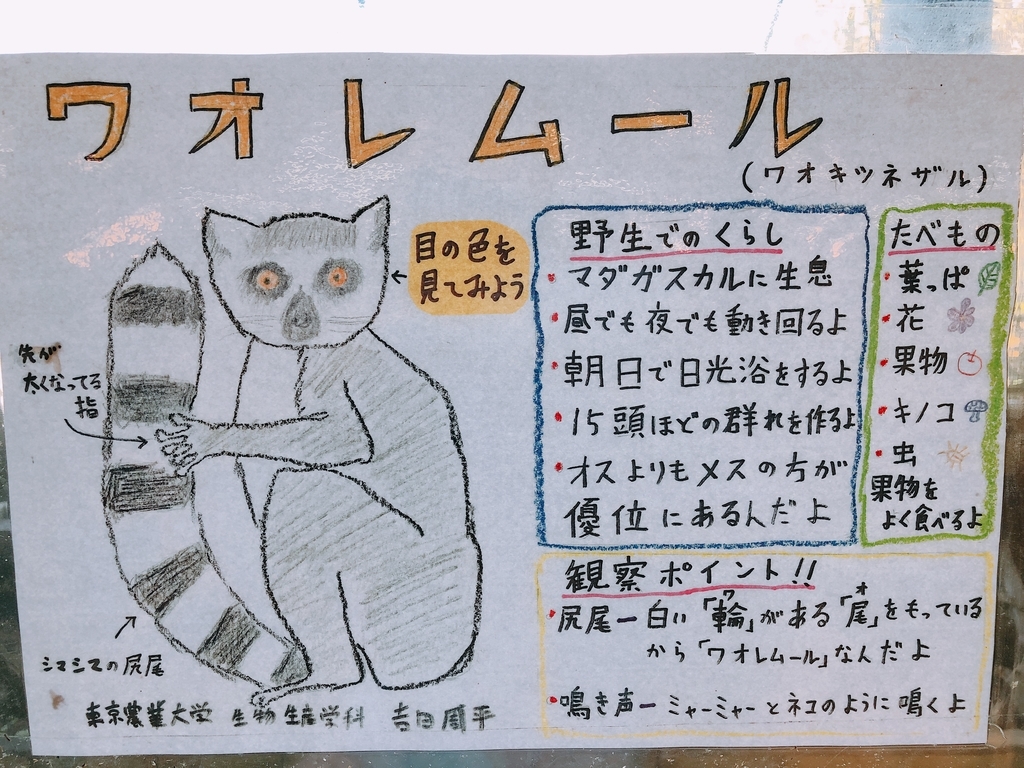 ワオレムール
(ワオキツネザル)
目の色を
見てみよう
先が
太くなってる
指
シマシマの尻尾
野生でのくらし
・マダガスカルに生息
・昼でも夜でも動き回るよ
・朝日で日光浴をするよ
・15頭ほどの群れを作るよ
・オスよりもメスの方が
優位にあるんだよ
たべもの
・葉っぱ
・花
・果物
・キノコ
・虫
果物を
よく食べるよ
観察ポイント!!
・尻尾ー白い「輪」がある「尾」をもっている
ワ オ
から「ワオレムール」なんだよ
・鳴き声ーミャーミャーとネコのように鳴くよ
東京農業大学 生物生産学科 吉田周平